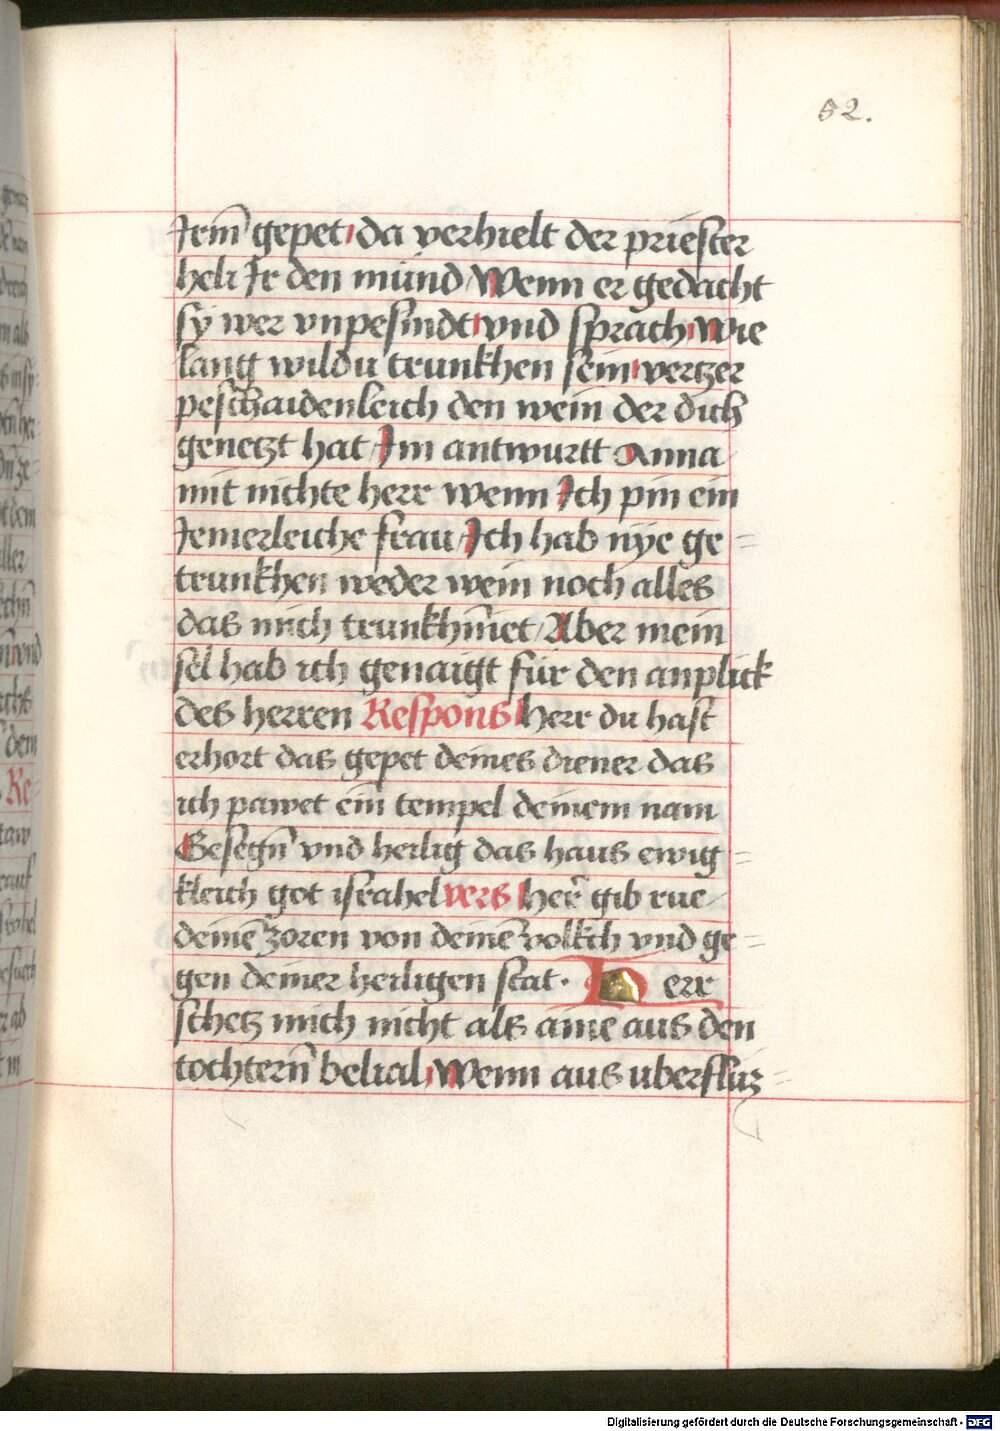 52.
Irm̄ gepet / da verhielt der priester
heli Ir den mund / Wenn er gedacht
sy wer vnpesindt / vnd sprach / Wie
lang wildu trunkhen sein / vertzer
peschaidenleich den wein der dich
genetzt hat / Im antwurtt Anna
mit nichte herr wenn Ich pin ein
Iemerleiche frau / Ich hab nÿe ge=
trunkhen weder wein noch alles
das mich trunkhn̄et / Aber mein
sel hab ich genaigt für den anplick
des herren Respons Herr du hast
erhort das gepet deines diener das
ich pawet ein tempel deinem nam
Gesegn̄ vnd heilig das haus ewig=
kleich got israhel vers Her̄ gib rue
deinē zoren von deinē volkch vnd ge=
gen deiner heiligen stat · Herr
schetz mich nicht als aine aus den
tochtern̄ belial / Wenn aus uberfluz=
Digitalisierung gefördert durch die Deutsche Forschungsgemeinschaft - DFG